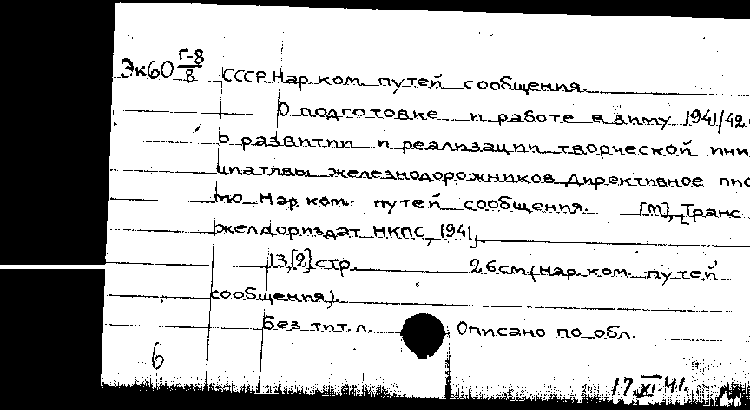 Эк60 Г-8/8 СССР Нар.ком. путей сообщения.
О подготовке и работе в зиму 1941/42
о развитии и реализации творческой ини
циативы железнодорожников. Директивное пис
мо Нар.ком. путей сообщения. [М], Транс
желдориздат НКПС, 1941.
13,[2] стр. 26см (Нар.ком. путей
сообщения).
Без тит.л. Описано по обл.
6
17 XI 41.